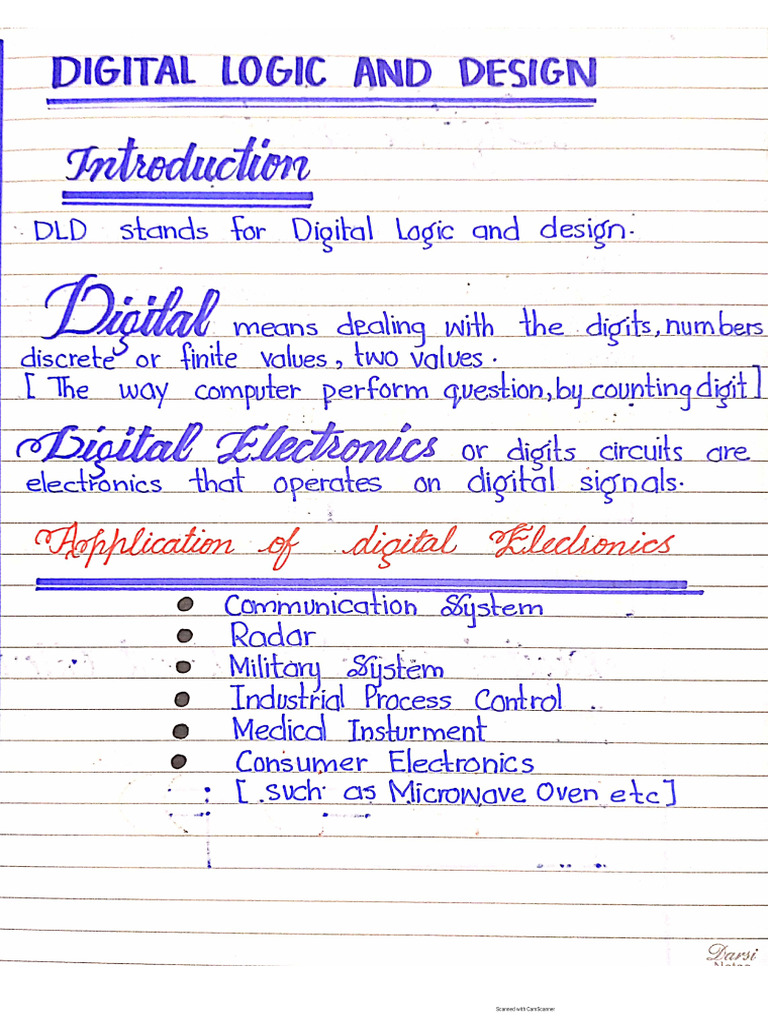 DIGITAL LOGIC AND DESIGN
Introduction
DLD stands for Digital Logic and design.
Digital means dealing with the digits, numbers
discrete or finite values, two values.
[ The way computer perform question, by counting digit ]
Digital Electronics or digits circuits are
electronics that operates on digital signals.
Application of digital Electronics
• Communication System
• Radar
• Military System
• Industrial Process Control
• Medical Insturment
• Consumer Electronics
: [ such as Microwave Oven etc ]
Darsi
Scanned with CamScanner